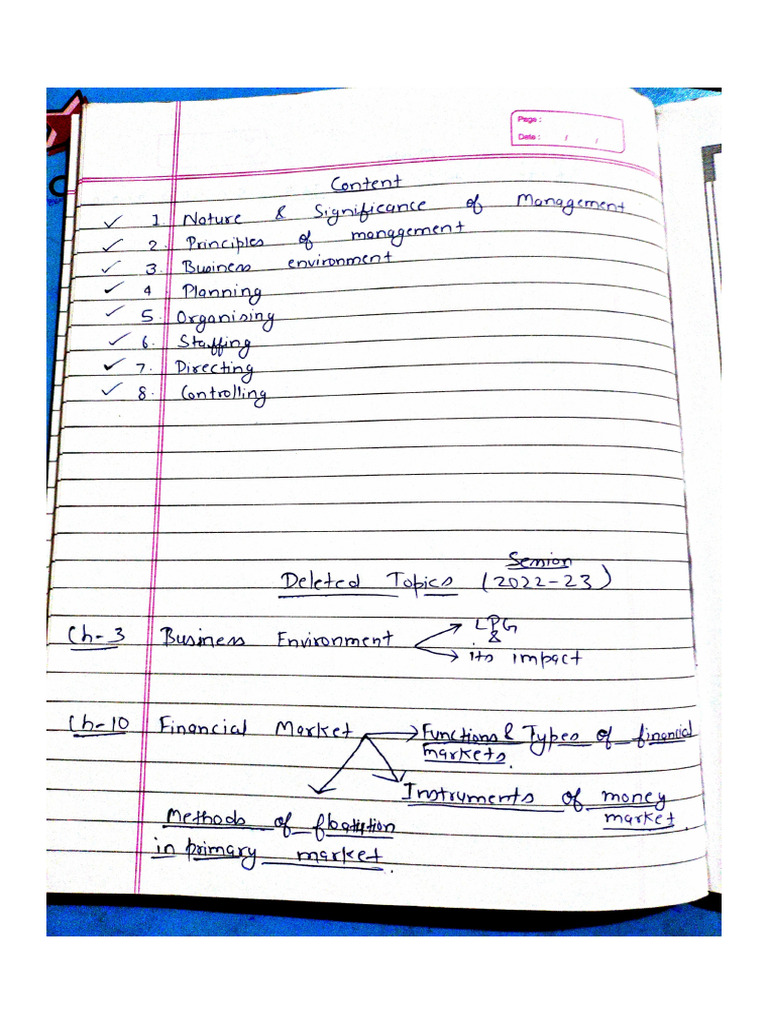 Page :
Date : / /
Content
✓ 1. Nature & Significance of Management
✓ 2. Principles of management
✓ 3. Business environment
✓ 4 Planning
✓ 5. Organising
✓ 6. Staffing
✓ 7. Directing
✓ 8. Controlling
Session
Deleted Topics (2022-23)
Ch-3 Business Environment → LPG
&
→ its impact
Ch-10 Financial Market → Functions & Types of financial
markets.
Instruments of money
market.
Methods of floatation
in primary market.